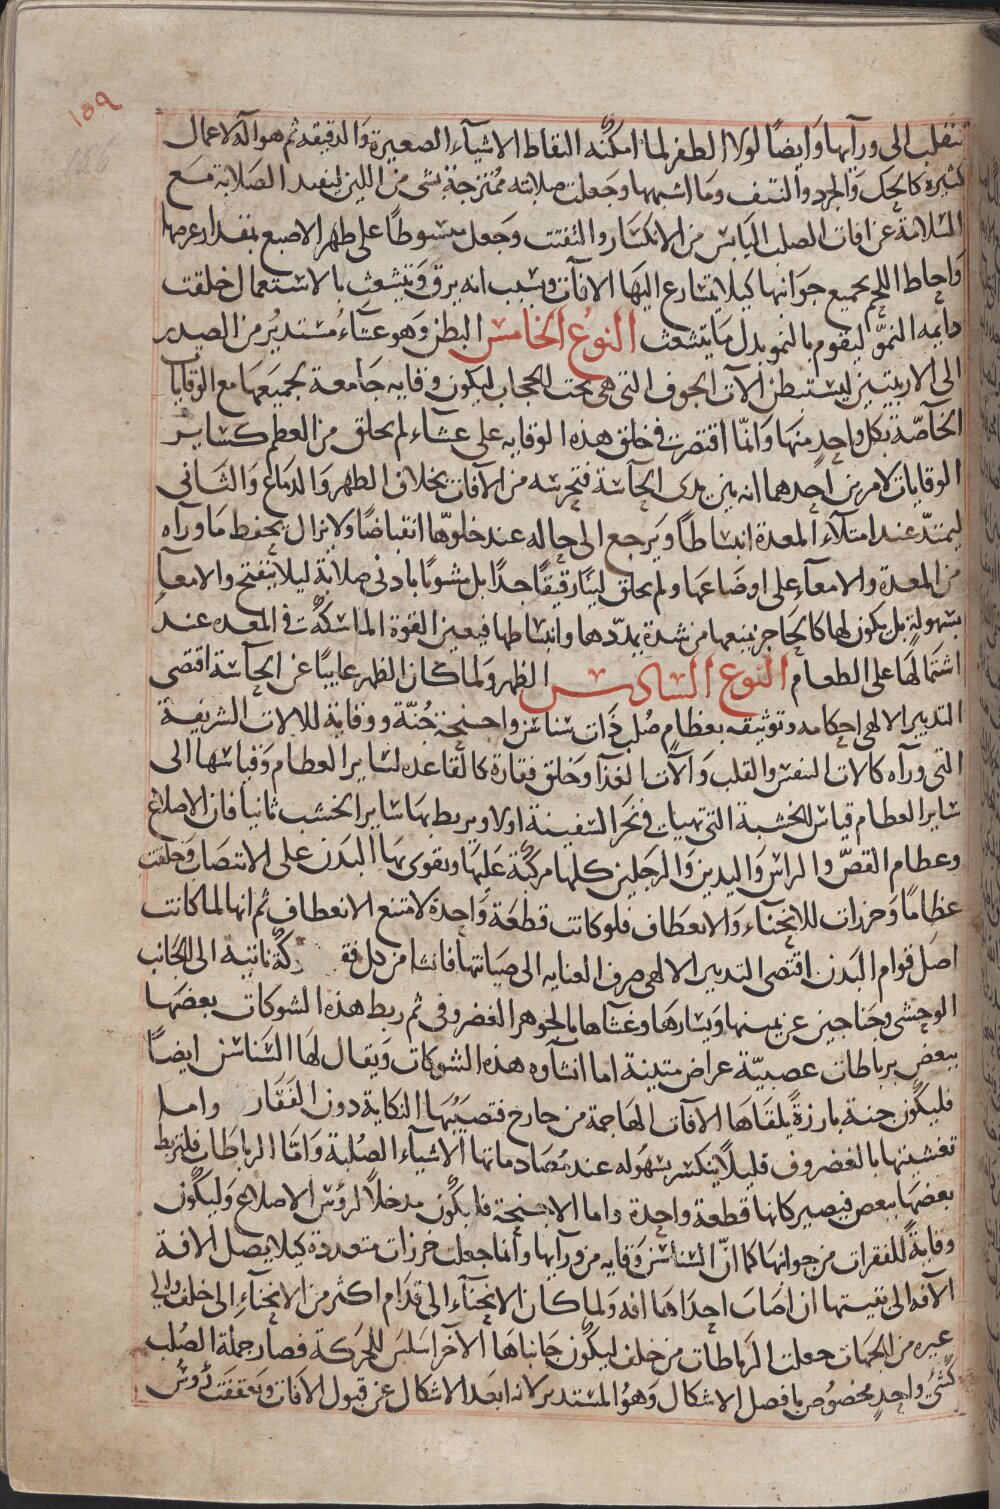 ١٥٩
156
تنقلب الى ورآيها وَايضًا لولا الظفر لما امكنه التقاط الاشيآء الصغيرة وَالدقيقه ثم هو آلة لاعمال
كثيرة كالحك وَالجرد والنتف وما اشبهها وجعلت صلابته ممتزجة بشى من اللين ليفيد الصلابة مع
السّلامة عن افات الصلب اليابس من الانكسار والتفتت وجعل مبسوطًا على ظهر الاصبع بمقدار عرضها
وَاحاط اللحم بجميع جوانبها كيلا يتسارع اليهَا الافات وبسبب انه يرق وَيتشعث بالاستعمال خلقت
دايمه النموّ ليقوم بالنمو بدل مايتشعث النوع الخامس البطن وَهو غشآءُ مُستديُر من الصدر
الى الاربيتين ليستبطن آلات الجوف التى هى تحت الحجاب ليكون وقايه جَامعة لجميعهَا مع الوقايات
الخاصّة بكل وَاحد منهَا وَانمّا اقتصرت فى خلق هذه الوقايه على غشآء لم يخلق من العظم كساير
الوقايات لامرين اَحدهما انه بين يدى الحآسة فتحرسه من الافات بخلاف الظهر وَالدماغ وَالثاني
ليمتدّ عند امتلآء المعدة انبسَاطًا وَيرجع الى حاله عند خلوّها انقباضًا ولا يزال يحفظ مَا ورآه
من المعدة والامعآء على اوضَاعهَا ولم يخلق ليّنًا رقيقًا جدًا بل مشوبًا بادنى صلابة ليلا ينفتح والامعآ
بسهولة بل يكون لهما كالحَاجز يمنعهما من شدة تمدّدها وانبساطها فيعين القوة الماسكة فى المعده عند
اشتمَالهَا على الطعام النوع السَادس الظهر وَلما كان الظهر غايبًا عن الحآسة اقتضى
التدبير الالهى احكامه وتوثيقه بعظام صُلبٍ ذات سَناسن واجنحة جُنّة ووقاية للالات الشريفة
التى ورآه كالات النفس والقلب وَآلات الغذآ وَخلق فقاره كالقاعده لسَاير العظام وَقياسها الى
سَاير العظام قياس الخشبة التى تهيات فى نجر السفينة اولا ويربط بهَا سَاير الخشب ثانيًا فان الاضلاع
وعظام القصّ والراس وَاليدين وَالرجلين كلها مركبة عَليهَا ويقوى بهَا البدن على الانتصاب وَخلقت
عظامًا وَخرزات للانحنآء وَالانعطَاف فلو كانت قطعَة وَاحدة لامتنع الانعطاف ثم انها لما كانت
اصل قوام البدن اقتضى التدبير الالهى صرف العنايه الى صيَانتها فانشا من كل فق كة ناتية الى الجَانب
الوحشى وجناحين عن يمينها وَيسَارهَا وغشّاها بالجوهر الغضروفى ثم ربط هذه الشوكات بعضهَا
ببعض برباطات عصبيّة عراض متينة اما انشاوه هذه الشوكات وَيقال لهَا السَّناسن ايضًا
فليكون جنة بارزة يلقاهَا الافات الهَاجمة من خارج فتصيبُهَا النكاية دون الفقَار وامَا
تغشيتها بالغضروف فليلا ينكسر بسهُوله عند مُصَادماتها الاشيآء الصُلبة وَامّا الرباطات فلتربط
بعضهَا ببعض فيصير كانها قطعة واحدة واما الاجنحة فليكون مدخلاً لرؤس الاضلاع وَليكون
وقايةً للفقرات من جوانبهَا كما انّ السناسن وَقايه من ورآيها وانما جعلت خرزات متعددة كيلا يصل الافة
الآفه الى بقيتها ان اصَاب احداهَا افه وَلما كان الانحنآء الى قدام اكثر من الانحنآءِ الى خلف والى
غيره من الجهات جعلت الرباطات من خلف ليكون جَانباهَا الآخر اسَلسَ للحرَكة فصار جملة الصُلب
كشئ واحدٍ مخصُوص بافضل الاشكال وَهوُ المستدير لانه ابعَد الاشكال عن قبول الافات وتعقفت رؤسُ